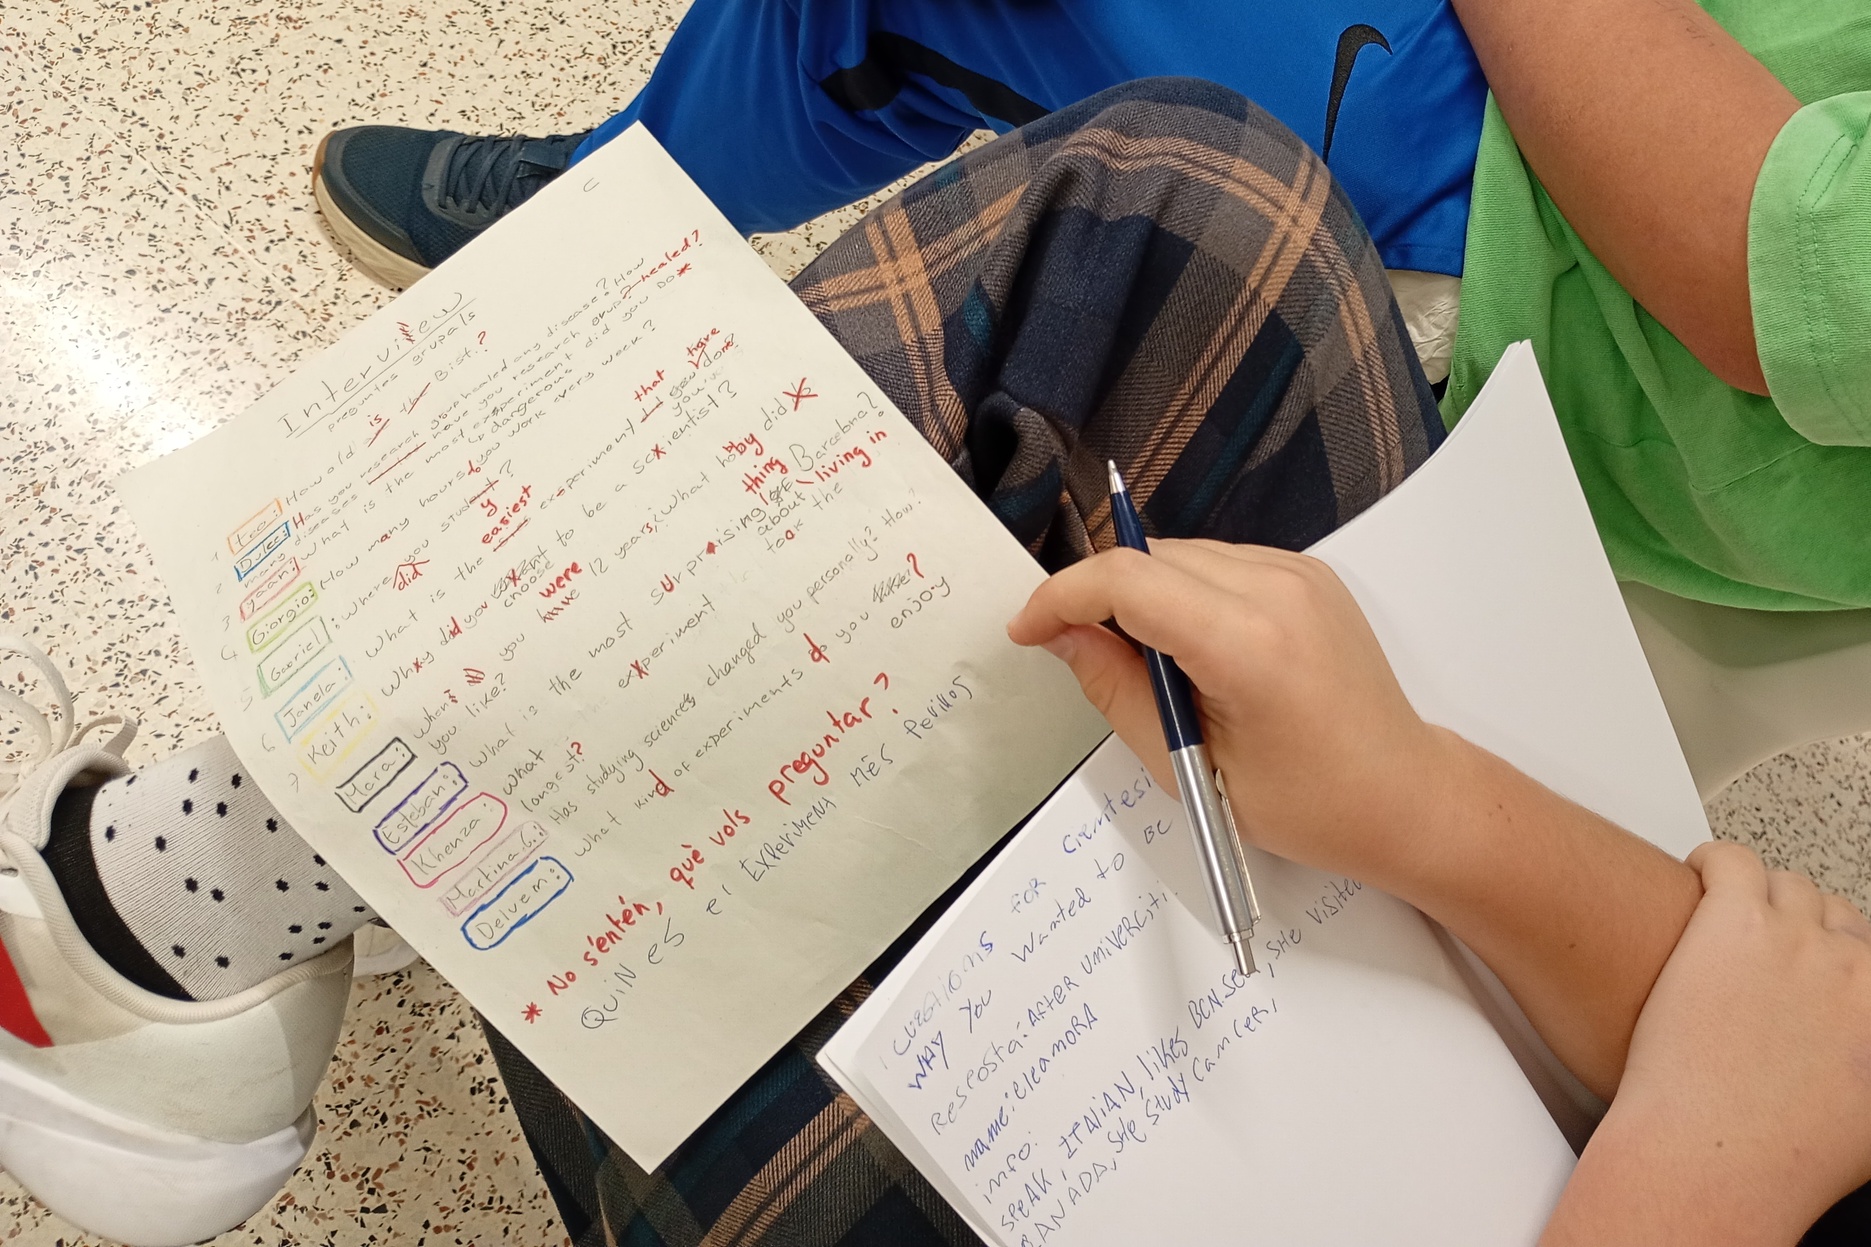 Interview
preguntes grupals
Teo: How old is the Bist?
Dulce: Has you research you healed any disease? How
many diseases have you research grup? healed?
yaan: What is the most experiment did you Do*
dangerous
Giorgio: How many hours do you work every week?
Gabriel: where did you student?
Janela: What is the easiest experiment that you have done
Keith: Why did you choose to be a scientist?
Mara: When you were 12 years, what hobby did
you like?
Esteban: What is the most surprising thing about living in Barcelona?
Khenza: What experiment took the
longest?
Martina.G: Has studying sciences changed you personally? How?
Delvem: What kind of experiments do you enjoy?
* No s'entén, què vols preguntar?
QUiN ES el EXPERIMENt MÉS PERillos
CUESTIONS FOR Cientesi
WHY YOU Wanted to BE
RESPOSTA: AFTER UNIVERCiti.
name: eleanora
info:
speAk, ITANiAN, likes BCN. SHE, SHE VISITED
CANADA, SHE STUDY CANCER,